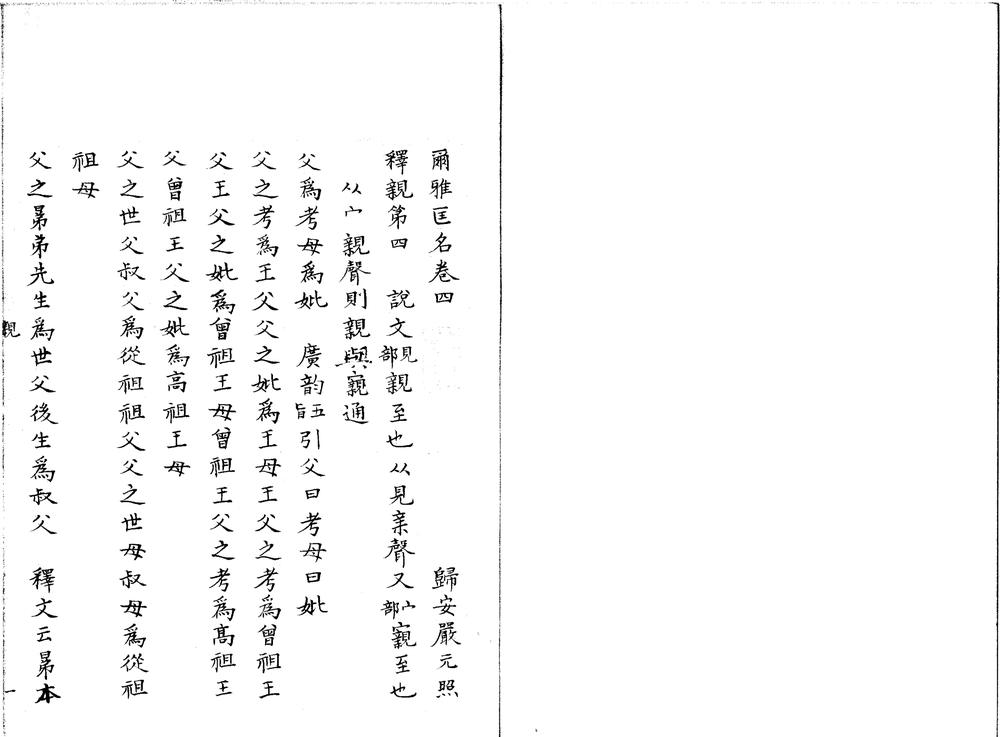 爾雅匡名卷四　歸安嚴元照
釋親第四　說文見部親至也从見亲聲又宀部寴至也
从宀親聲則親與寴通
父爲考母爲妣　廣韵五旨引父曰考母曰妣
父之考爲王父父之妣爲王母王父之考爲曾祖王
父王父之妣爲曾祖王母曾祖王父之考爲高祖王
父曾祖王父之妣爲高祖王母
父之世父叔父爲從祖祖父父之世母叔母爲從祖
祖母
父之晜弟先生爲世父後生爲叔父　釋文云晜本
親
一